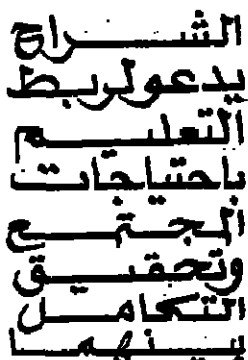 الشراح
يدعو لربط
التعليم
باحتياجات
المجتمع
وتحقيق
التكامل
بينهما